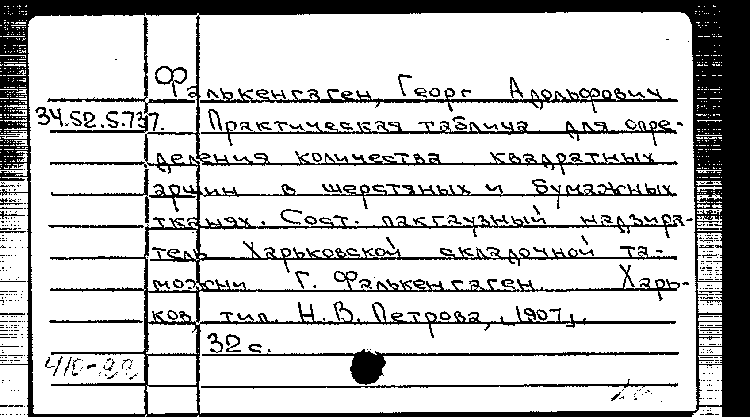 Фалькенгаген, Георг Адольфович
34.52.5.737. Практическая таблица для опре-
деления количества квадратных
аршин в шерстяных и бумажных
тканях. Сост. пакгаузный надзира-
тель Харьковской складочной та-
можни Г. Фалькенгаген. Харь-
ков, тип. Н. В. Петрова, [1907].
32 с.